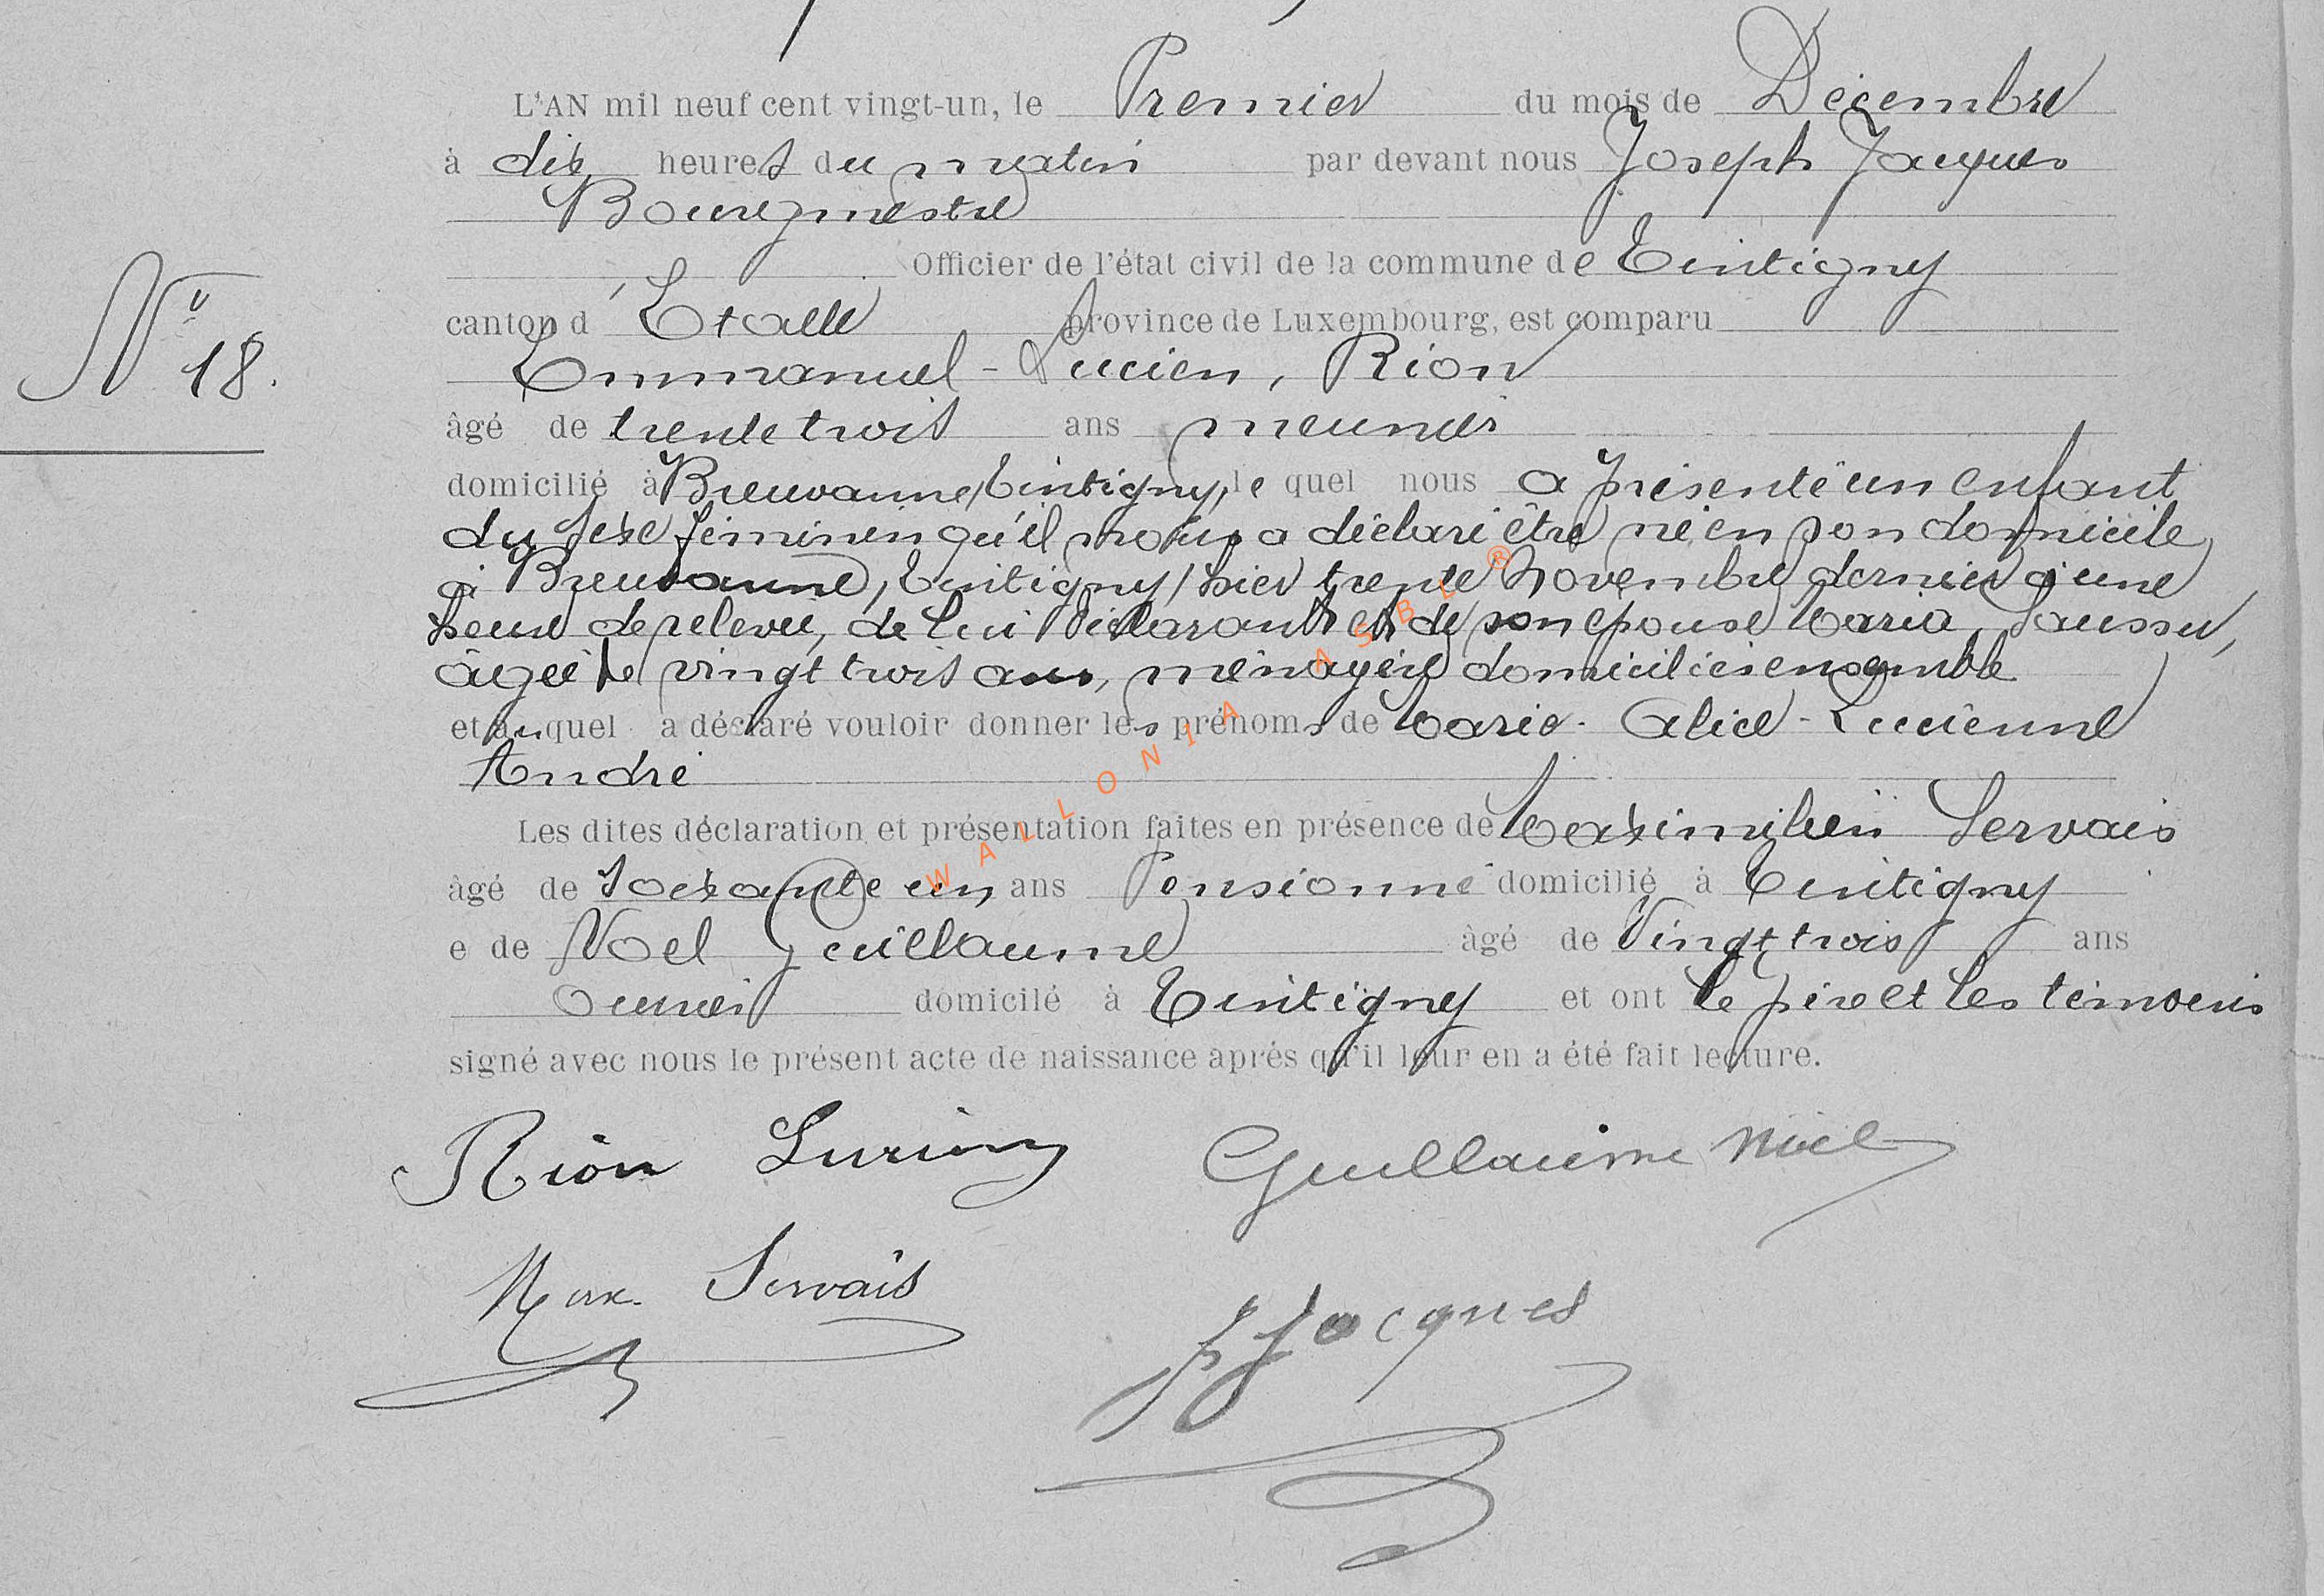 L'AN mil neuf cent vingt-un, le Premier du mois de Décembre
à dix heures du matin par devant nous Joseph Jacques
Bourgmestre
Officier de l'état civil de la commune de Tintigny
canton d'Etalle province de Luxembourg, est comparu
N° 18.
Emmanuel-Lucien, Rion
âgé de trente trois ans meunier
domicilié à Breuvanne, Tintigny, le quel nous a présenté un enfant
du sexe féminin qu'il nous a déclaré être né en son domicile
à Breuvanne, Tintigny, hier trente Novembre dernier à une
heure de relevée, de lui déclarant et de son épouse Maria
âgée de vingt trois ans, ménagère domiciliés ensemble
et auquel a déclaré vouloir donner les prénoms de Marie-Alice-Lucienne
André
Les dites déclaration et présentation faites en présence de Maximilien Servais
âgé de soixante un ans Pensionné domicilié à Tintigny
e de Noel Guillaume âgé de Vingt trois ans
domicilé à Tintigny et ont le père et les témoins
signé avec nous le présent acte de naissance aprés qu'il leur en a été fait lecture.
Rion Lucien Guillaume Noël
Max. Servais
J Jacques
WALLONIA ASBL ®